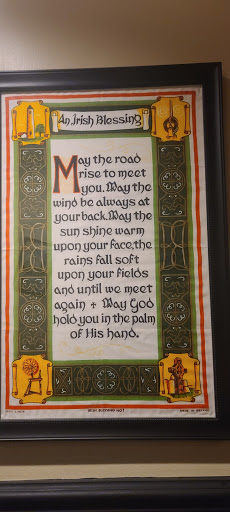 An Irish Blessing
May the road
rise to meet
you. May the
wind be always at
your back. May the
sun shine warm
upon your face, the
rains fall soft
upon your fields
and until we meet
again + May God
hold you in the palm
of His hand.
IRISH BLESSING NO.1